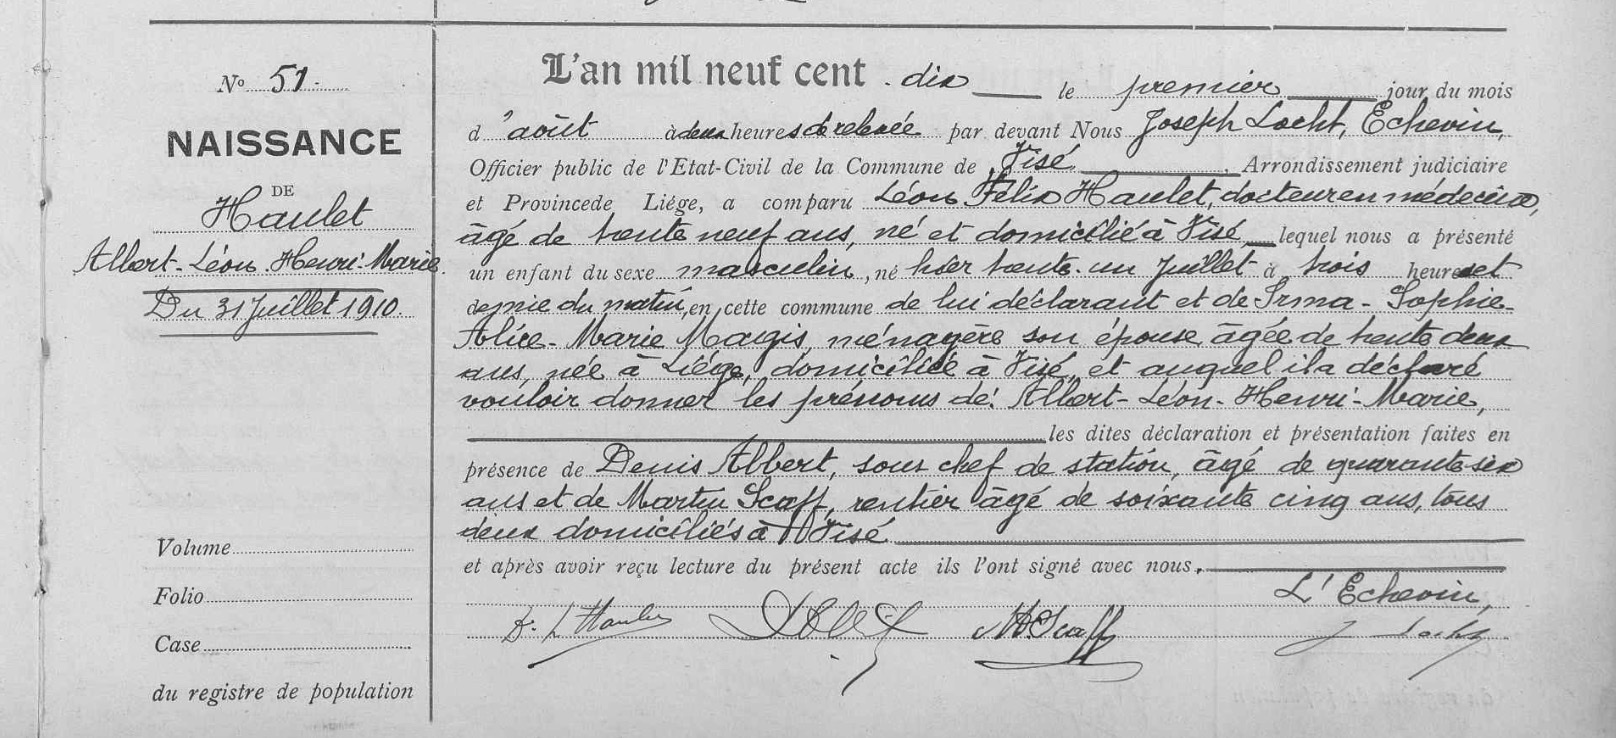 No 51.
NAISSANCE
DE
Haulet
Albert-Léon-Henri-Marie
Du 31 Juillet 1910.
Volume
Folio
Case
du registre de population
L'an mil neuf cent dix le premier jour du mois
d'août à deux heures de relevée par devant Nous Joseph Locht, Echevin,
Officier public de l'Etat-Civil de la Commune de Visé Arrondissement judiciaire
et Province de Liége, a comparu Léon Félix Haulet, docteur en médecine,
âgé de trente neuf ans, né et domicilié à Visé lequel nous a présenté
un enfant du sexe masculin, né hier trente-un Juillet à trois heures et
demie du matin, en cette commune de lui déclarant et de Irma-Sophie-
Alice-Marie Magis, ménagère son épouse âgée de trente deux
ans, née à Liége, domiciliée à Visé, et auquel il a déclaré
vouloir donner les prénoms de: Albert-Léon-Henri-Marie,
les dites déclaration et présentation faites en
présence de Denis Albert, sous chef de station, âgé de quarante-six
ans et de Martin Scaff, rentier âgé de soixante cinq ans, tous
deux domiciliés à Visé
et après avoir reçu lecture du présent acte ils l'ont signé avec nous.
L'Echevin,
Dr L Haulet M Scaff J Locht